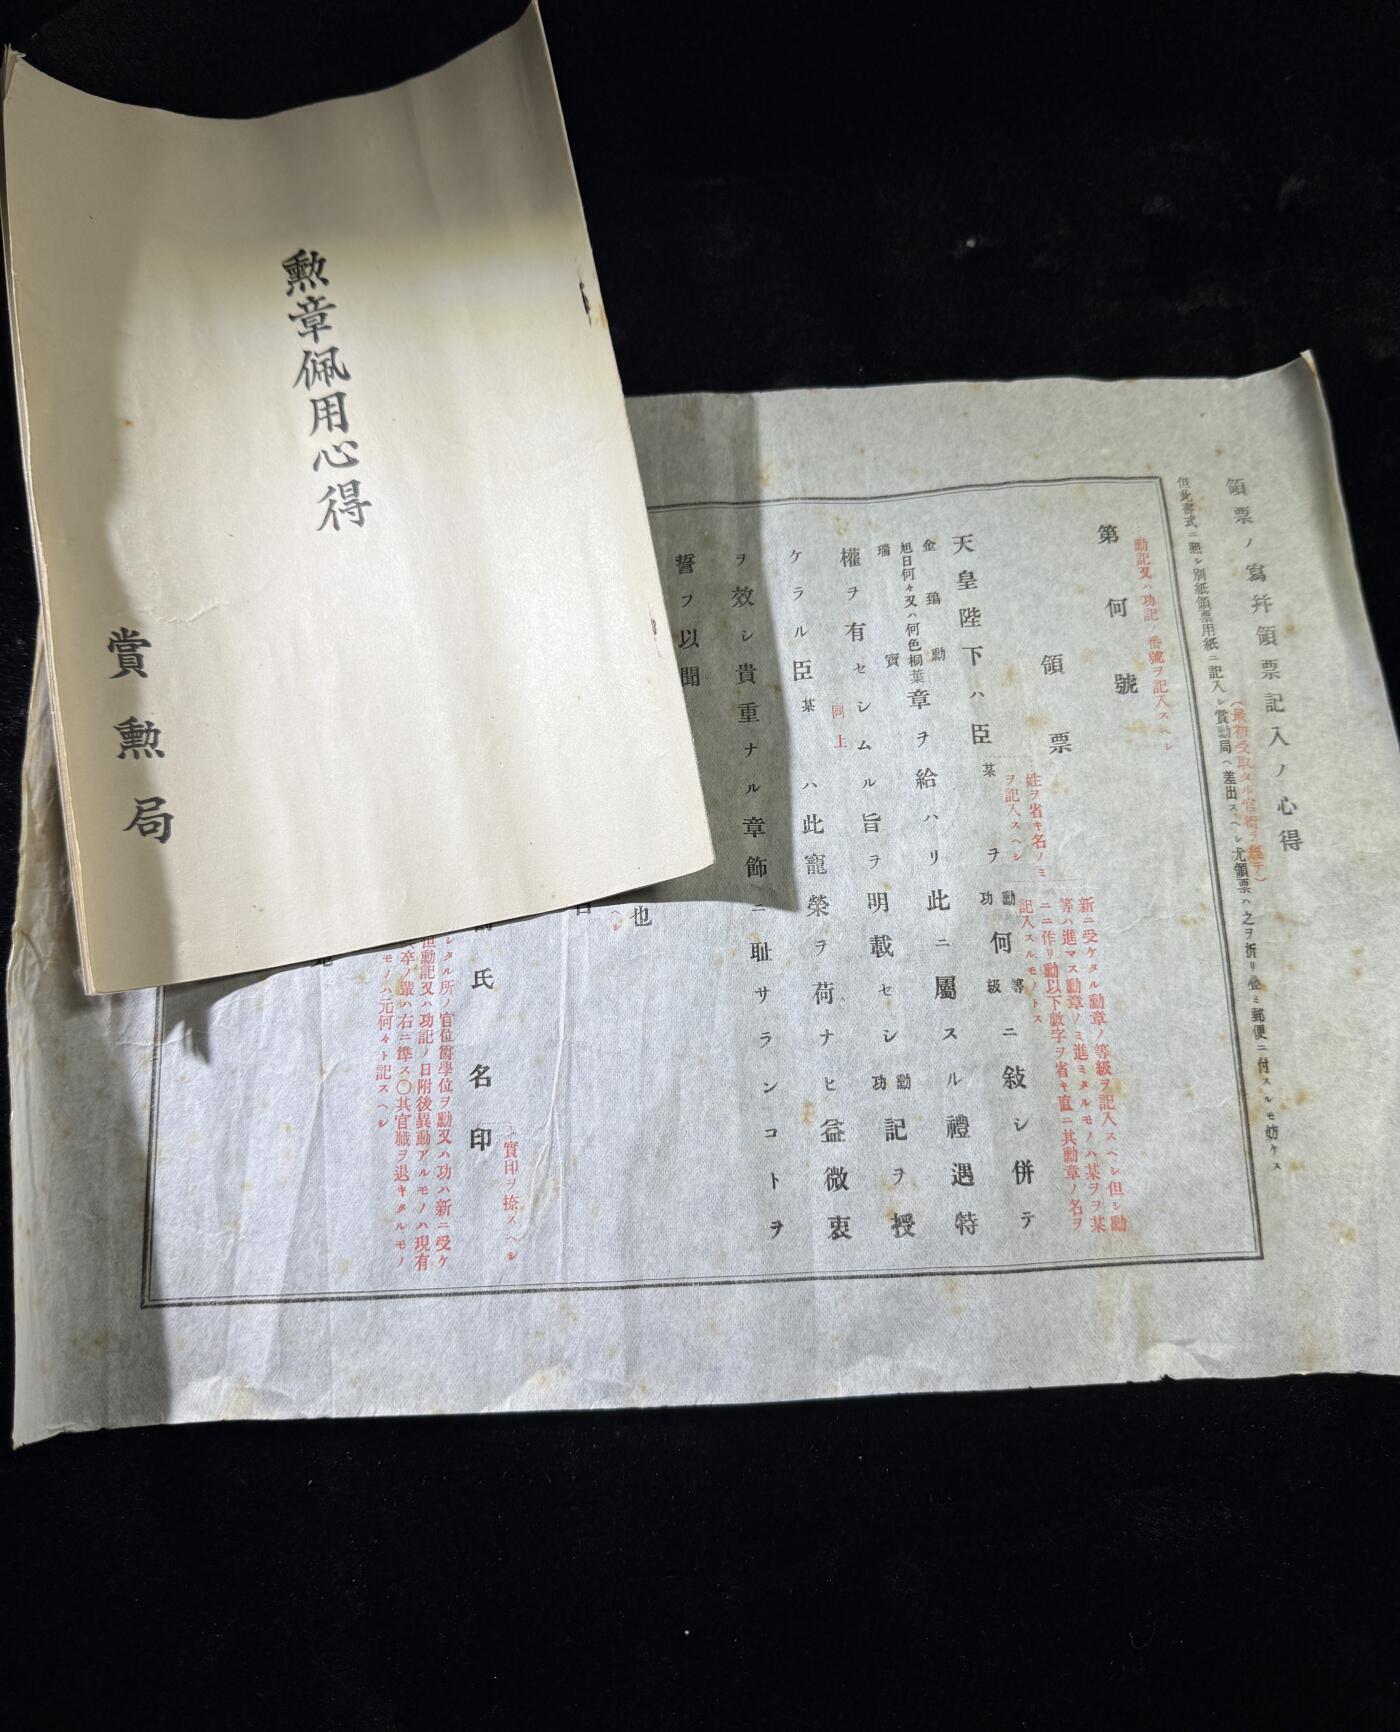 勲章佩用心得
賞勲局
領票ノ寫幷領票記入ノ心得
(最初受取タル官衙ヲ經テ)
但此書式ニ照シ別紙領票用紙ニ記入シ賞勳局ヘ差出スヘシ尤領票ハ之ヲ折リ疊ミ郵便ニ付スルモ妨ケス
勳記又ハ功記ノ番號ヲ記入スヘシ
第何號
領票
新ニ受ケタル勳章ノ等級ヲ記入スヘシ但シ勳
等ハ進マス勳章ノミ進ミタルモノハ某ヲヲ某
ニニ作リ勳以下數字ヲ省キ直ニ其勳章ノ名ヲ
記入スルモノトス
姓ヲ省キ名ノミ
ヲ記入スヘシ
天皇陛下ハ臣某ヲ勳功何等級ニ敍シ併テ
金鵄勳
旭日何々又ハ何色桐葉
瑞寶
章ヲ給ハリ此ニ屬スル禮遇特
權ヲ有セシムル旨ヲ明載セシ勳功記ヲ授
同上
ケラル臣某ハ此寵榮ヲ荷ナヒ益微衷
ヲ效シ貴重ナル章飾ニ耻サランコトヲ
誓フ以聞
也
ヘシ
實印ヲ捺スヘシ
氏名印
シタル所ノ官位爵學位ヲ勳又ハ功ハ新ニ受ケ
但勳記又ハ功記ノ日附後異動アルモノハ現有
卒ノ輩ハ右ニ準ス〇其官職ヲ退キタルモノ
モノハ元何々ト記スヘシ